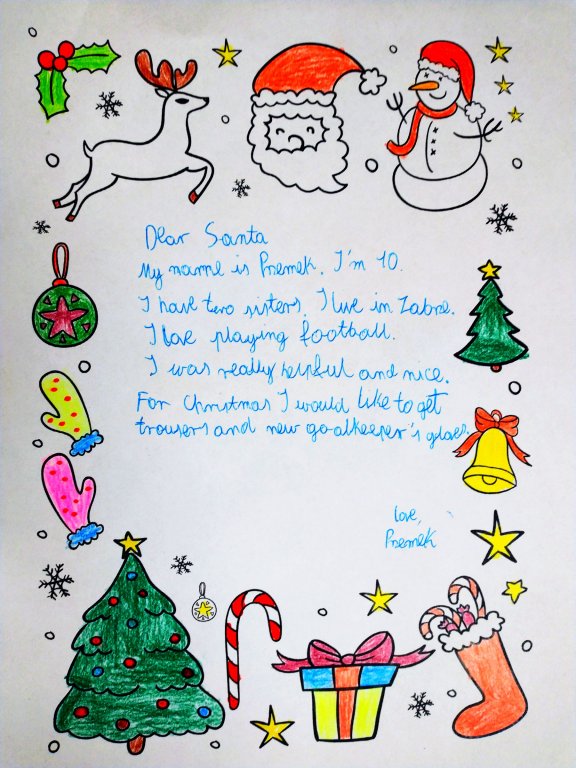 Dear Santa
My name is Przemek. I'm 10.
I have two sisters. I live in Zabrze.
I love playing football.
I was really helpful and nice.
For Christmas I would like to get
trousers and new goalkeeper's gloves.
love,
Przemek